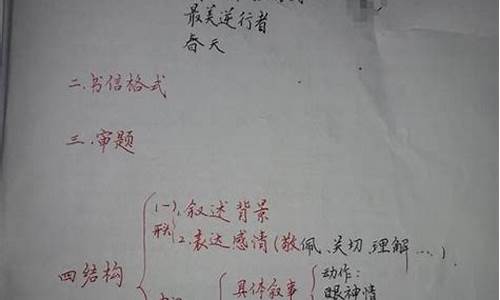 最美逆行者
春天
二.书信格式
三.审题
(一)1.叙述背景
2.表达感情(敬佩、关切、理解…).
四结构
具体叙事
动作:
眼神情